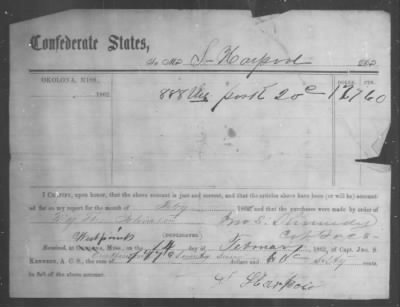 Confederate States,
To Mr. S Harpool Dr.
OKOLONA, MISS. DOLLS. CTS.
1862
888 lbs pork 20c 177 60
I CERTIFY, upon honor, that the above account is just and correct, and that the articles above have been (or will be) accounted
for on my report for the month of 1862 and the purchases were made by order of
Jno S. Kennedy
(DUPLICATES)
Received at OKOLONA, Miss., on the 14 day of February 1862, of Capt. Jno. S.
KENNEDY, A. C. S., the sum of Seventy Seven dollars and 60 Sixty cents
in full of the above account.
S Harpool